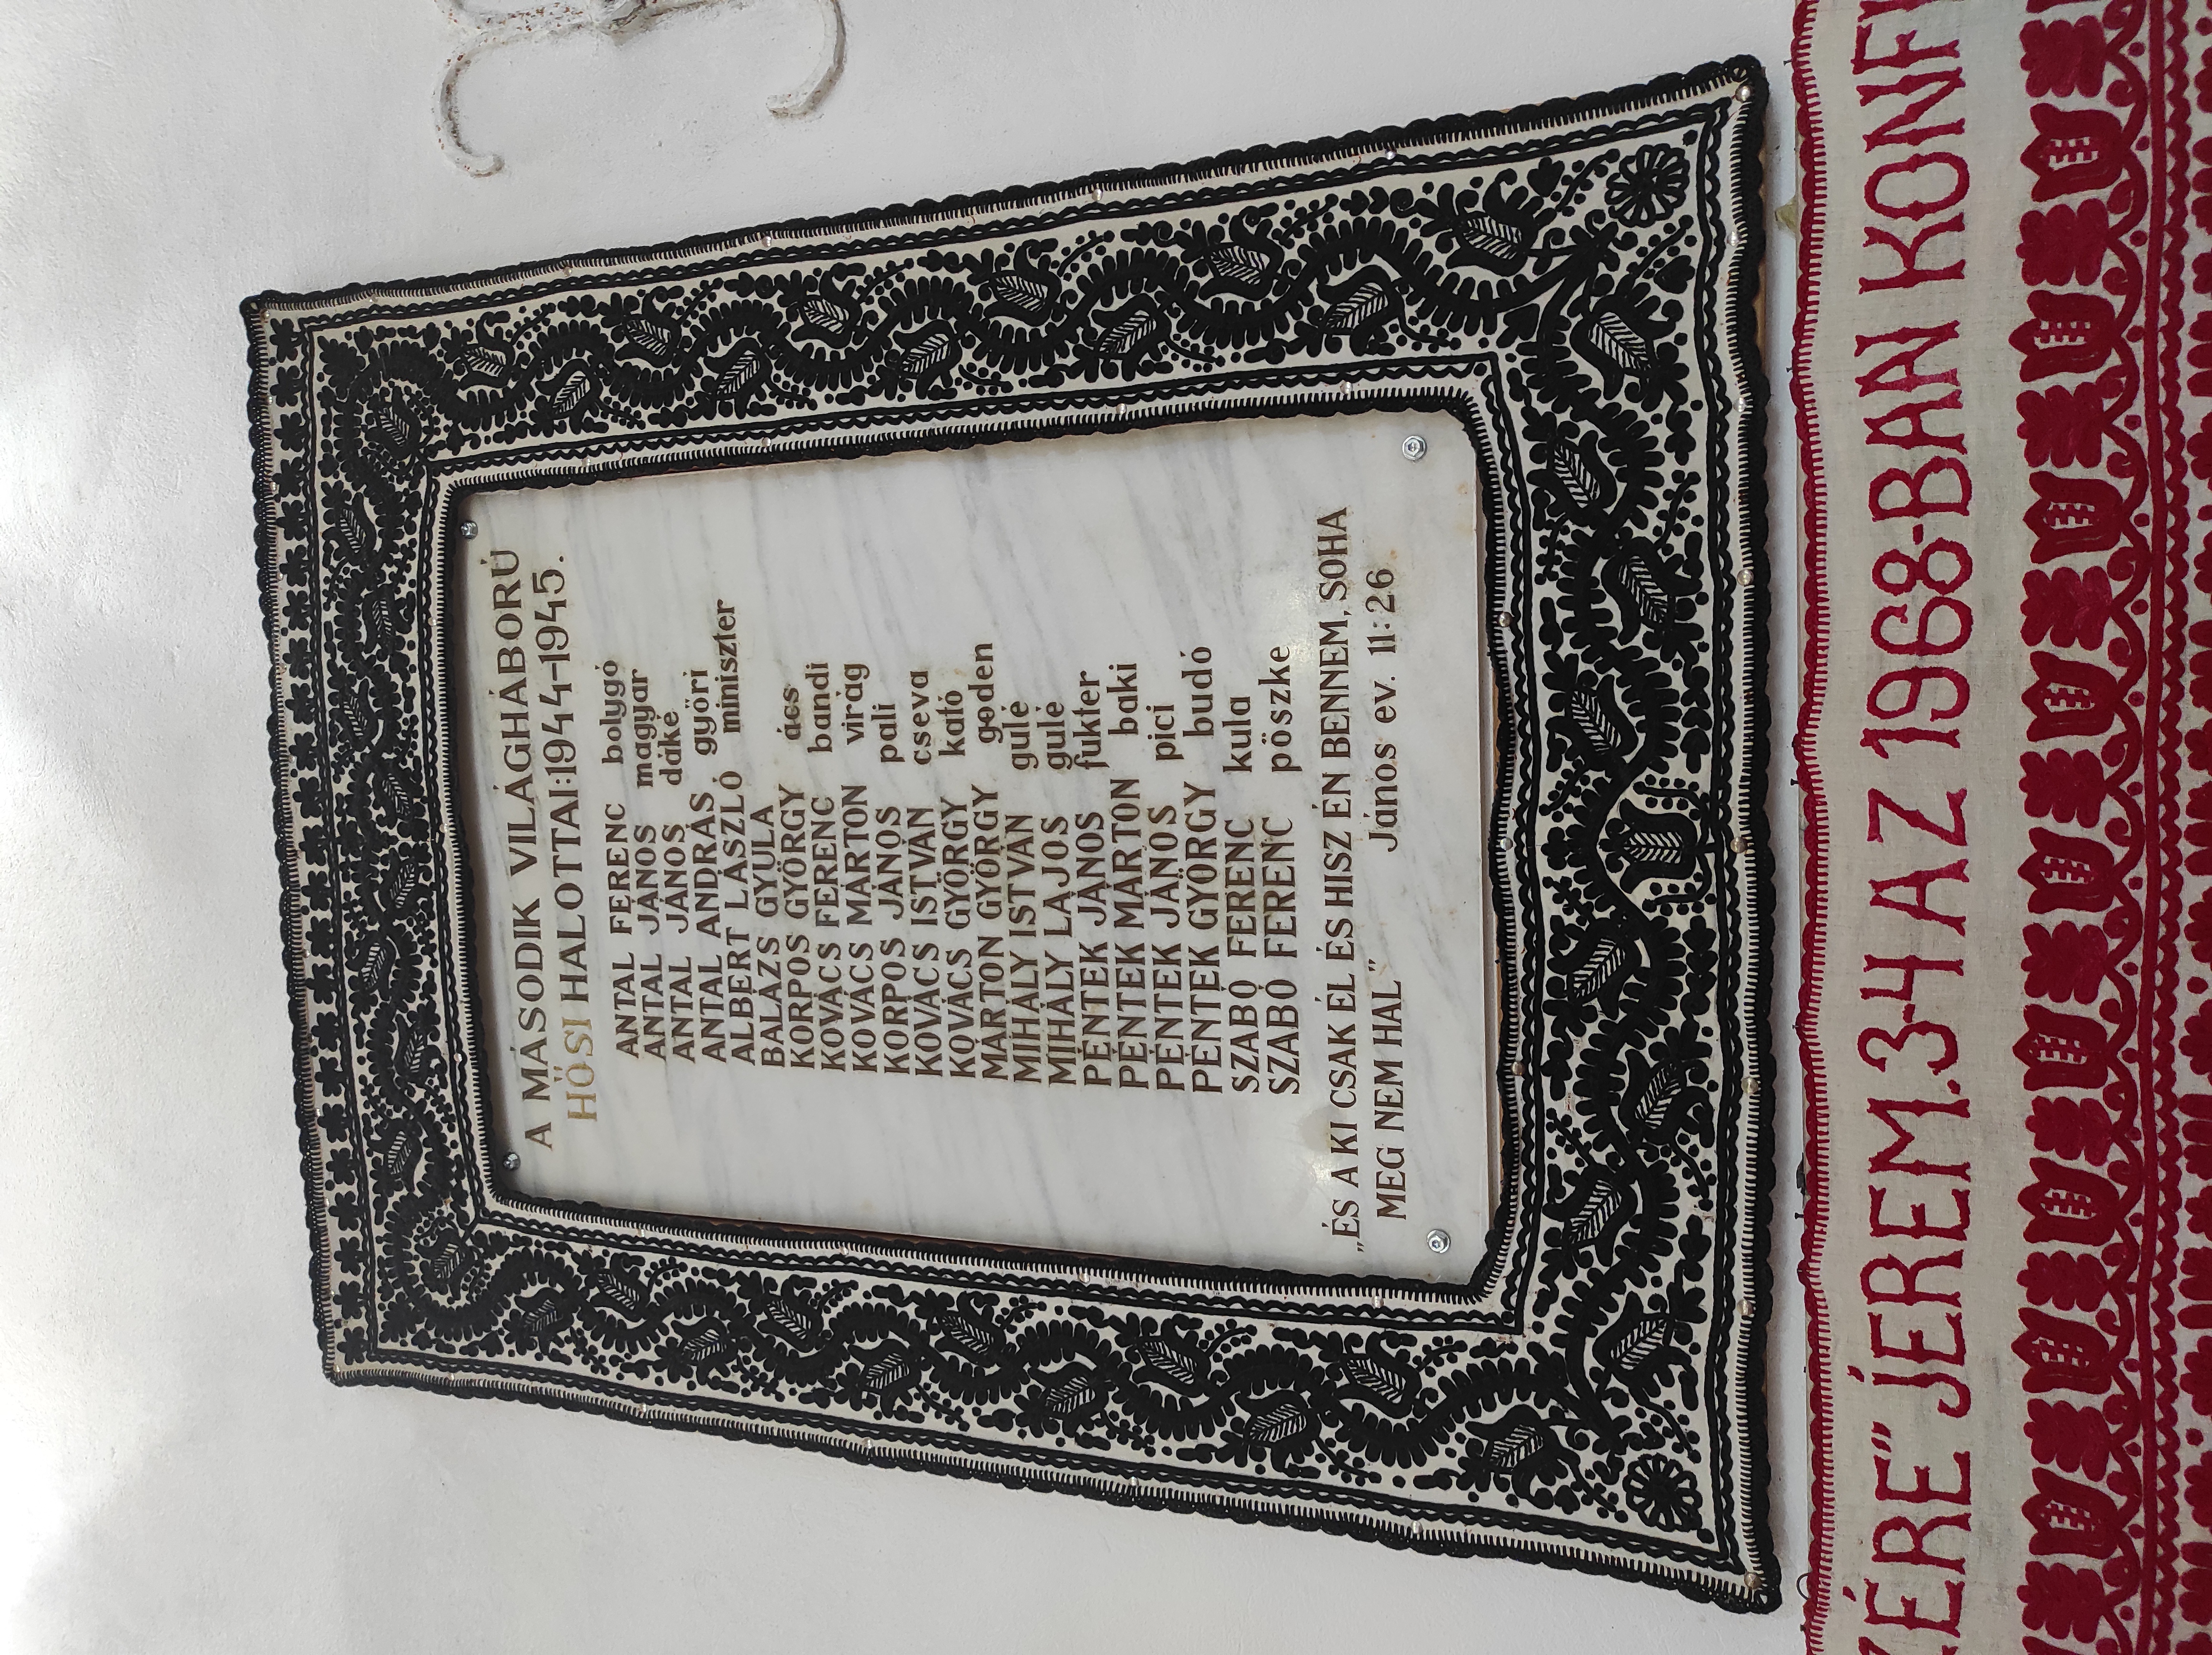 A MÁSODIK VILÁGHÁBORÚ
HŐSI HALOTTAI:1944-1945.
ANTAL FERENC bolygó
ANTAL JÁNOS magyar
ANTAL JÁNOS dáke
ANTAL ANDRÁS győri
ALBERT LÁSZLÓ miniszter
BALÁZS GYULA
KORPOS GYÖRGY ács
KOVÁCS FERENC bandi
KOVÁCS MÁRTON virág
KORPOS JÁNOS pali
KOVÁCS ISTVÁN cseva
KOVÁCS GYÖRGY kató
MÁRTON GYÖRGY goden
MIHÁLY ISTVÁN gulé
MIHÁLY LAJOS gulé
PÉNTEK JÁNOS fukter
PÉNTEK MÁRTON baki
PÉNTEK JÁNOS pici
PÉNTEK GYÖRGY budó
SZABÓ FERENC kula
SZABÓ FERENC pöszke
„ÉS A KI CSAK ÉL ÉS HISZ ÉN BENNEM, SOHA
MEG NEM HAL” János ev. 11:26
ZÉRE" JEREM.3-4 AZ 1968-BAN KONF